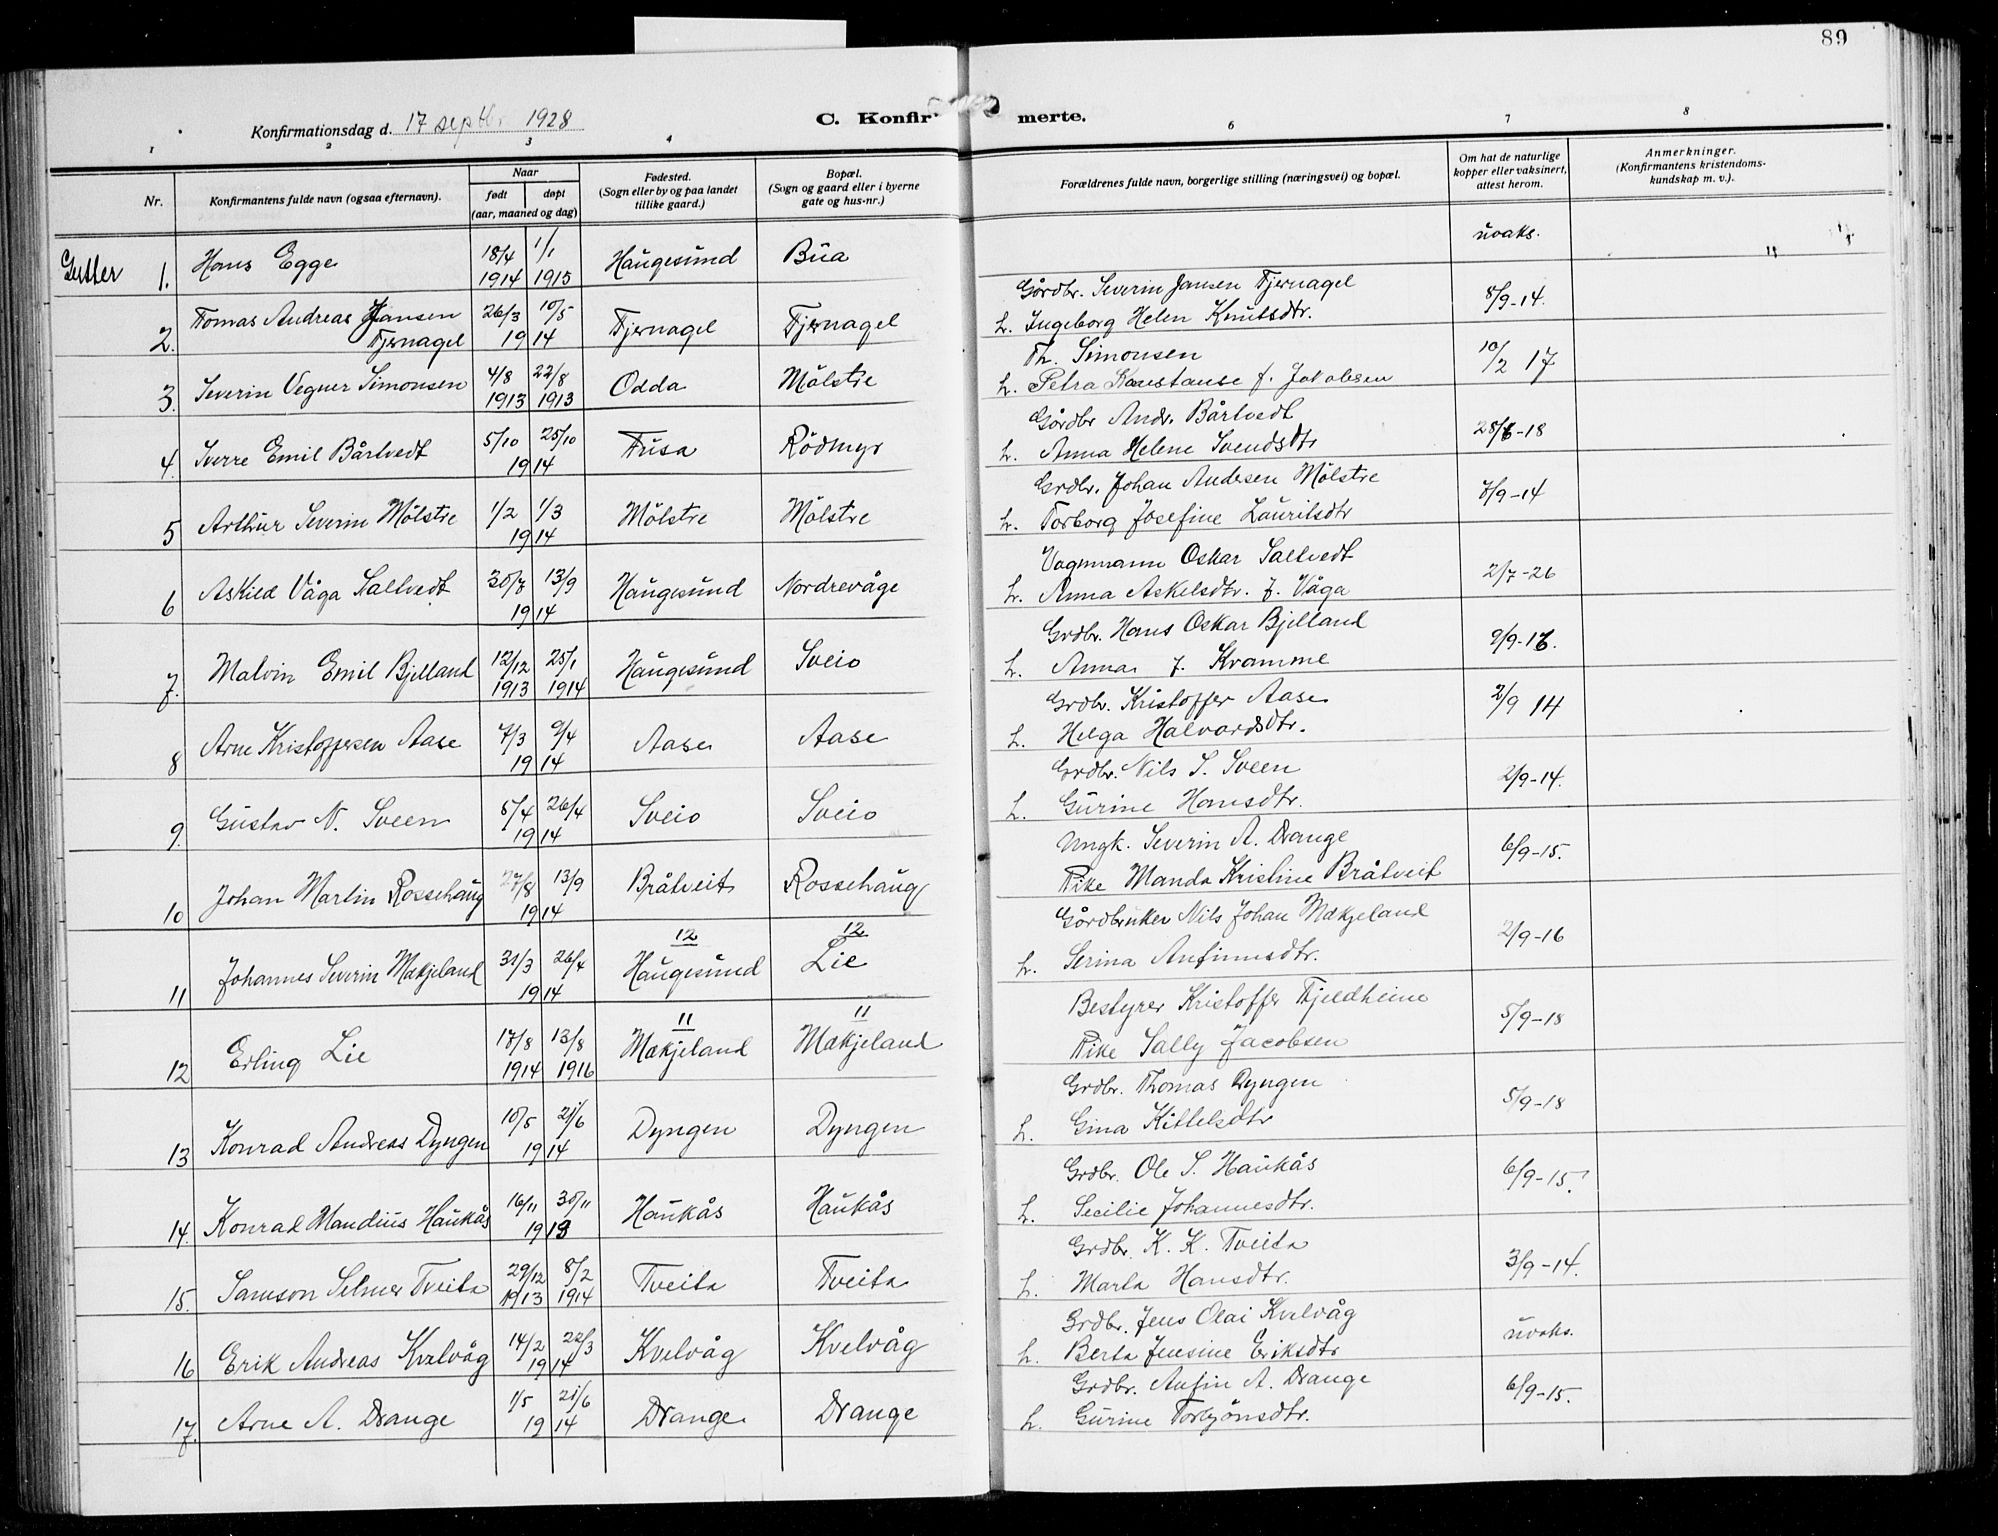 89
Konfirmationsdag d. 17 septbr 1928
C. Konfir merte.
1 2 3 4 6 7 8
Nr.
Konfirmantens fulde navn (ogsaa efternavn).
Naar
født døpt
(aar, maaned og dag)
Fødested.
(Sogn eller by og paa landet
tillike gaard.)
Bopæl.
(Sogn og gaard eller i byerne
gate og hus-nr.)
Forældrenes fulde navn, borgerlige stilling (næringsvei) og bopæl.
Om hat de naturlige
kopper eller vaksinert,
attest herom.
Anmerkninger.
(Konfirmantens kristendoms-
kundskap m. v.).
Gutter 1. Hans Egge 18/4 1914 1/1 1915 Haugesund Bua
uvaks.
2. Tomas Andreas Jansen
Tjernagel 26/3 10/5 1914 Tjernagel Tjernagel
Gårdbr. Severin Jansen Tjernagel
h. Ingeborg Helen Knutsdtr. 8/9-14.
3. Severin Vegner Simonsen 4/8 1913 22/8 1913 Odda Mølstre
Th. Simonsen
h. Petra Konstanse f. Jakobsen 10/2 17
4. Sverre Emil Bårtvedt 5/10 25/10 1914 Fusa Rødmyr
Gårdbr Andr. Bårtvedt
h. Anna Helene Svendsdtr 28/6-18
5 Arthur Severin Mølstre 1/2 1/3 1914 Mølstre Mølstre
Grdbr. Johan Andersen Mølstre
h. Torborg Josefine Lauritsdtr 7/9-14
6 Askild Våga Saltvedt 30/7 13/9 1914 Haugesund Nordrevåge
Vognmann Oskar Saltvedt
h. Anna Askelsdtr. f. Våga 2/7-26
7. Malvin Emil Bjelland 12/12 1913 25/1 1914 Haugesund Sveio
Grdbr. Hans Oskar Bjelland
h. Anna f. Kramme 9/9-16.
8 Arne Kristoffersen Aase 7/3 9/4 1914 Aase Aase
Grdbr. Kristoffer Aase
h. Helga Halvardsdtr. 2/9 14
9. Gustav N. Sveen 5/4 26/4 1914 Sveio Sveio
Grdbr. Nils S. Sveen
h. Gurine Hansdtr. 2/9-14.
10 Johan Martin Rossehaug 27/8 13/9 1914 Bråtveit Rossehaug
Ungk. Severin A. Drange
Pike Manda Kristine Bråtveit 6/9-15.
11 Johannes Severin Mækjeland 31/3 26/4 1914 12 Haugesund 12 Lie
Gårdbruker Nils Johan Mækjeland
h. Serina Anfinnsdtr. 2/9-16
12 Erling Lie 17/8 1914 13/8 1916 11 Mækjeland 11 Mækjeland
Bestyrer Kristoffer Fjeldheim
Pike Sally Jacobsen 5/9-18
13 Konrad Andreas Dyngen 10/5 21/6 1914 Dyngen Dyngen
Grdbr. Thomas Dyngen
h. Gina Kittelsdtr 5/9-18
14. Konrad Mandius Haukås 16/11 30/11 1913 Haukås Haukås
Grdbr. Ole S. Haukås
h. Secilie Johannesdtr. 6/9-15.
15. Samson Selmer Tveita 29/12 1913 8/2 1914 Tveita Tveita
Grdbr. K. K. Tveita
h. Marta Hansdtr. 3/9-14.
16 Erik Andreas Kvalvåg 14/2 22/3 1914 Kvelvåg Kvelvåg
Grdbr. Jens Olai Kvalvåg
h. Berta Jensine Eriksdtr uvaks.
17. Arne A. Drange 1/5 21/6 1914 Drange Drange
Grdbr. Anfin A. Drange
h. Gurine Torbjønsdtr. 6/9-15.